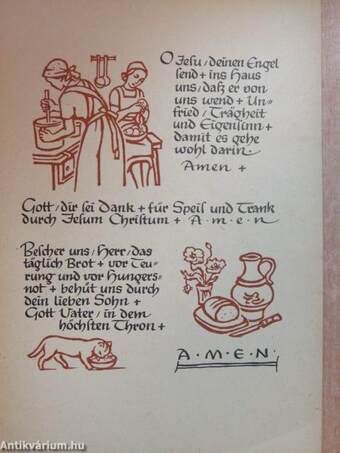 O Jesu / deinen Engel
send + ins Haus
uns / daß er von
uns wend + Un-
fried / Trägheit
und Eigensinn +
damit es gehe
wohl darin.
Amen +
Gott / dir sei Dank + für Speis und Trank
durch Jesum Christum + A·m·e·n
Bescher uns / Herr / das
täglich Brot + vor Teu-
rung und vor Hungers-
not + behüt uns durch
dein lieben Sohn +
Gott Vater / in dem
höchsten Thron +
A·M·E·N·
Antikvárium.hu